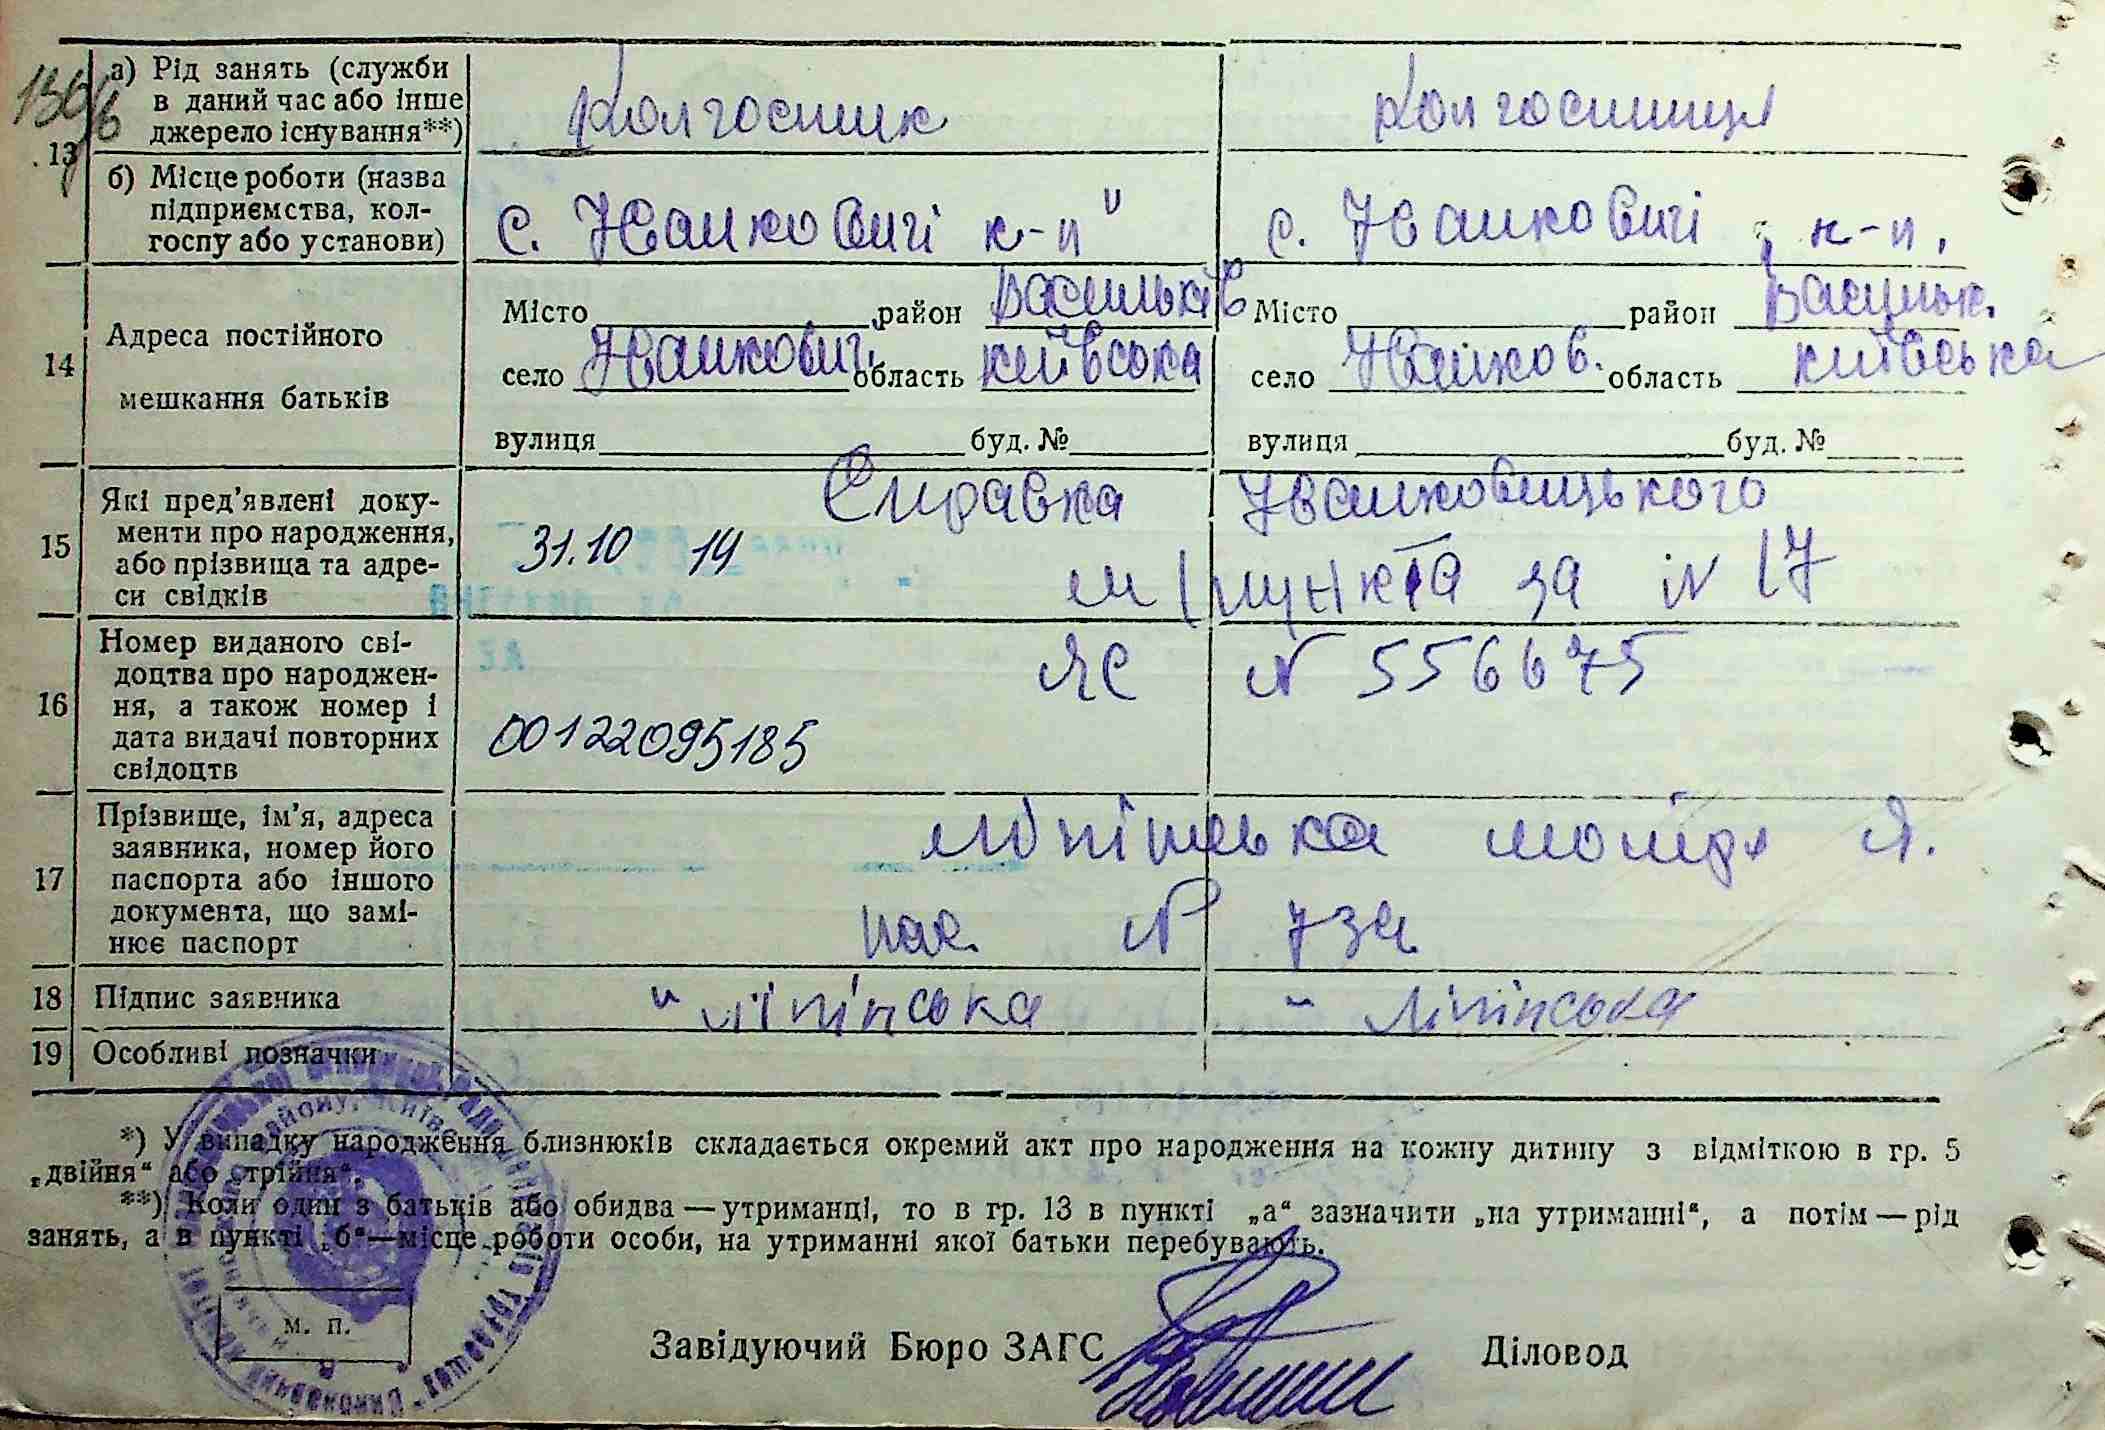 136/6
13
а) Рід занять (служби
в даний час або інше
джерело існування**)
Колгоспник
Колгоспниця
б) Місце роботи (назва
підприємства, кол-
госпу або установи)
с. Іванковичі к-п
с. Іванковичі к-п.
14
Адреса постійного
мешкання батьків
Місто район Васильків
село Іванкович. область Київська
вулиця буд. №
Місто район Васильк.
село Іванков. область Київська
вулиця буд. №
15
Які пред’явлені доку-
менти про народження,
або прізвища та адре-
си свідків
31.10 14
Справка Іванковицького
м/пункта за N 17
16
Номер виданого сві-
доцтва про народжен-
ня, а також номер і
дата видачі повторних
свідоцтв
ЯС N 556675
00122095185
17
Прізвище, ім’я, адреса
заявника, номер його
паспорта або іншого
документа, що замі-
нює паспорт
Ліпінська Я.
пас. №
18
Підпис заявника
" Ліпінська
" Ліпінська
19
Особливі позначки
*) У випадку народження близнюків складається окремий акт про народження на кожну дитину з відміткою в гр. 5
„двійня“ або „трійня“.
**) Коли один з батьків або обидва — утриманці, то в гр. 13 в пункті „а“ зазначити „на утриманні“, а потім — рід
занять, а в пункті „б“ — місце роботи особи, на утриманні якої батьки перебувають.
м. п.
Завідуючий Бюро ЗАГС
Діловод